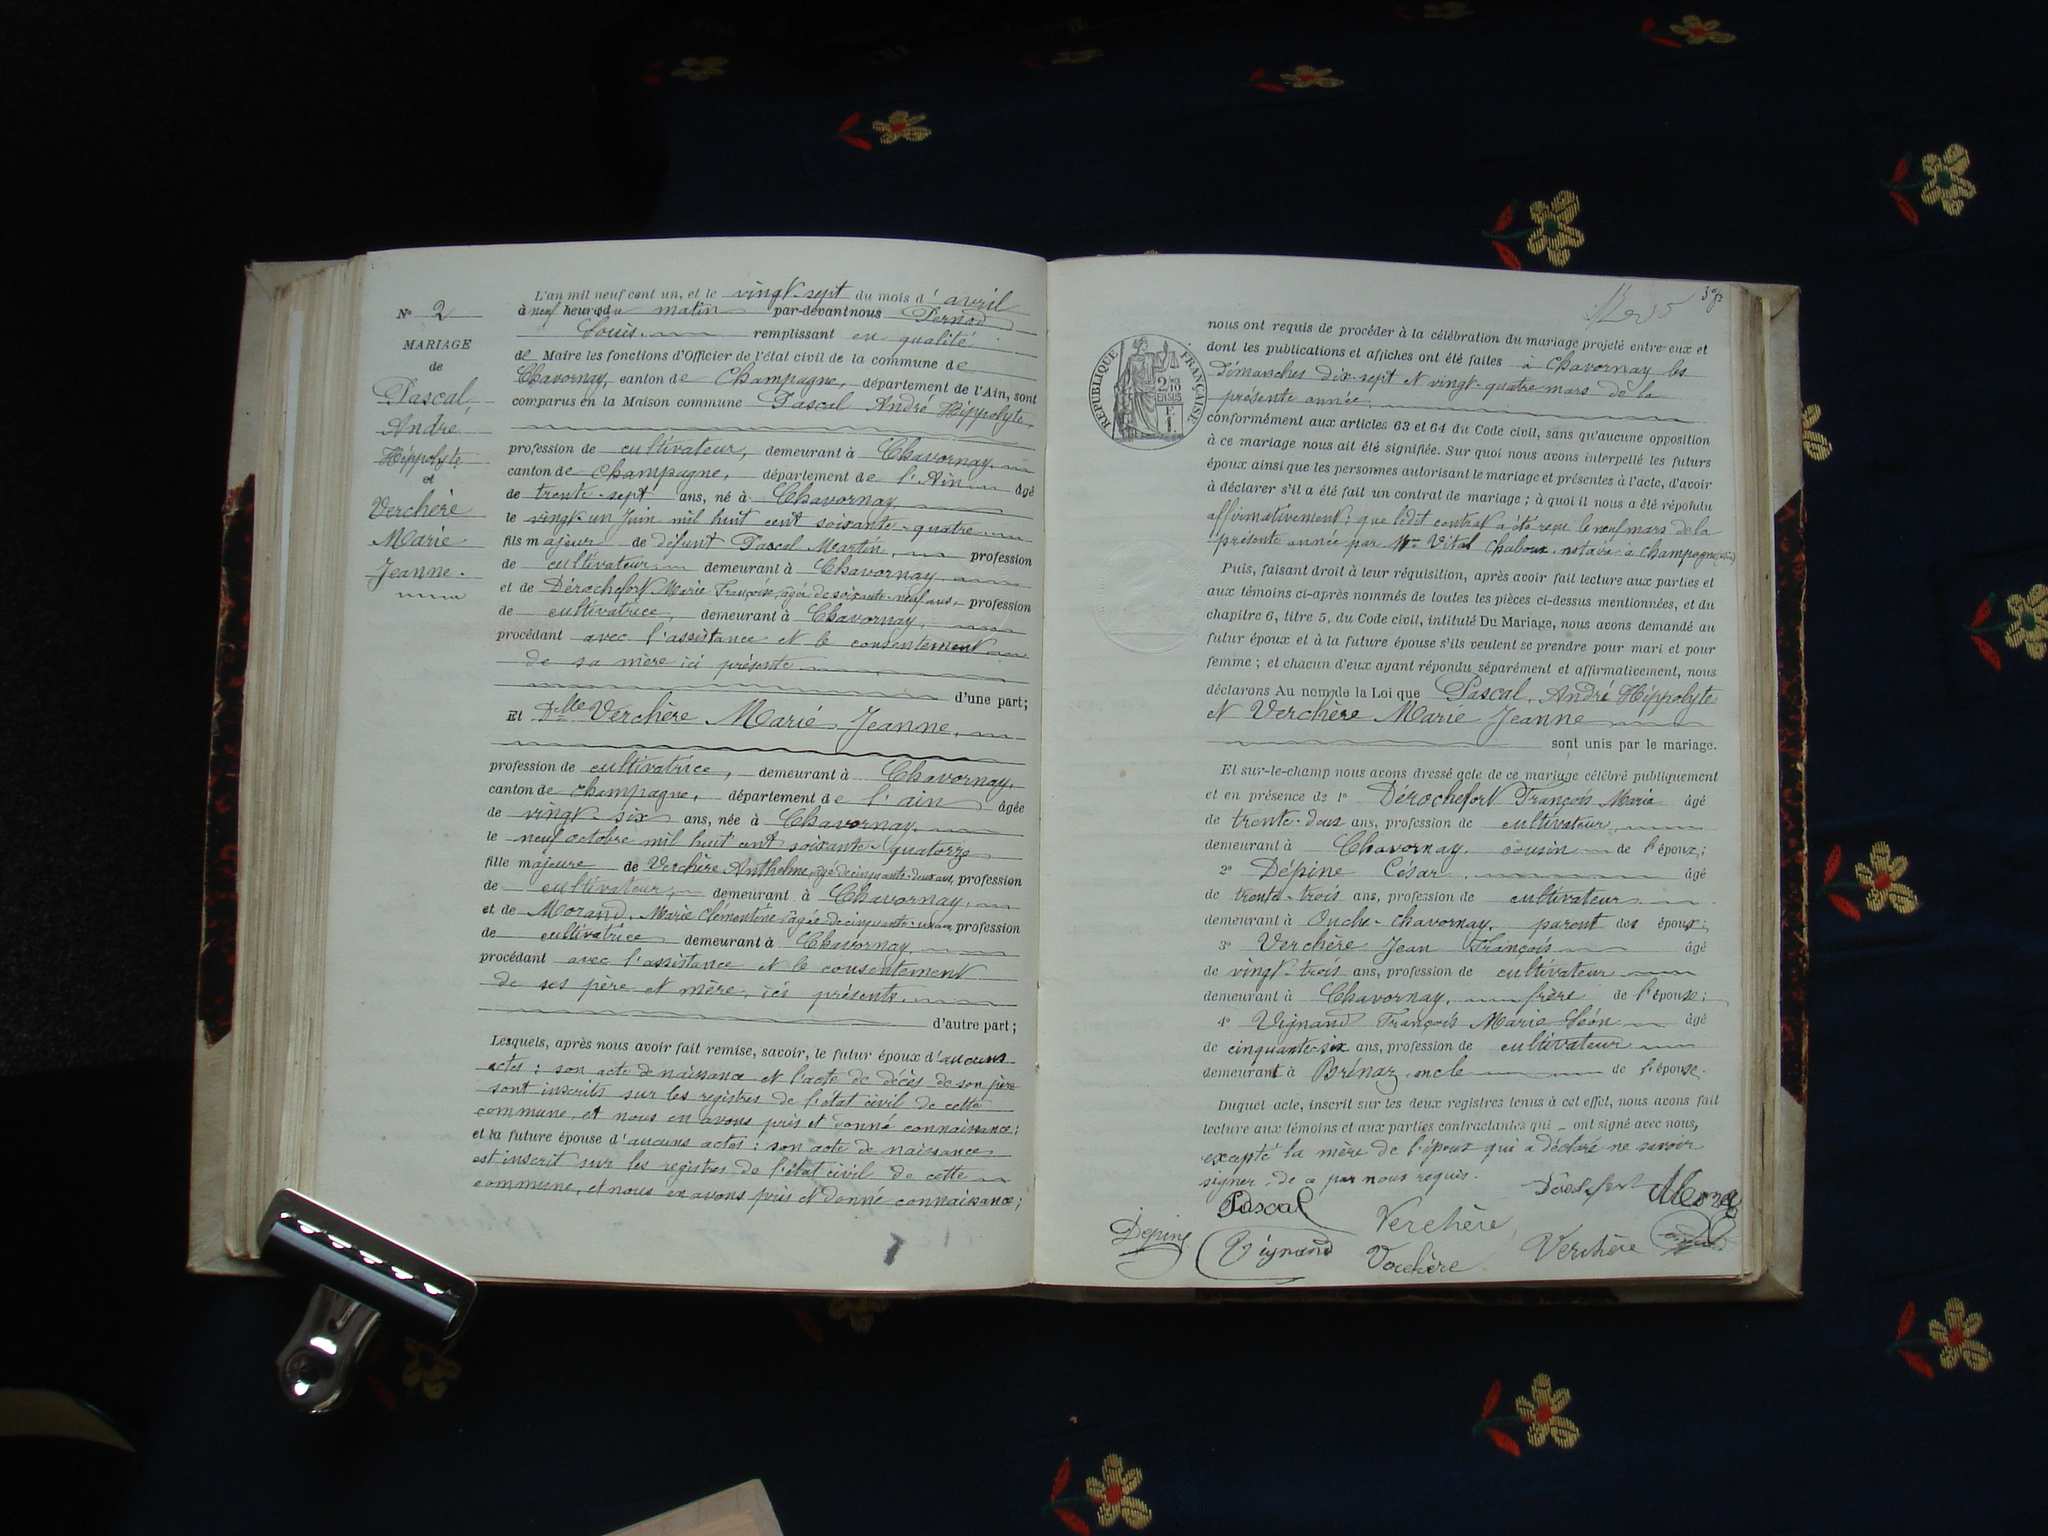 N° 2
MARIAGE
de
Pascal
André
Hippolyte
et
Verchère
Marie
Jeanne.
L'an mil neuf cent un, et le vingt-sept du mois d'avril
à neuf heures du matin par-devant nous Pernod
Louis. remplissant en qualité
de Maire les fonctions d'Officier de l'état civil de la commune de
Chavornay, canton de Champagne, département de l'Ain, sont
comparus en la Maison commune Pascal André Hippolyte,
profession de cultivateur, demeurant à Chavornay.
canton de Champagne, département de l'Ain âgé
de trente-sept ans, né à Chavornay
le vingt un Juin mil huit cent soixante-quatre
fils majeur de défunt Pascal Martin, profession
de cultivateur demeurant à Chavornay
et de Dérochefort Marie Françoise, âgée de soixante-neuf ans, profession
de cultivatrice, demeurant à Chavornay,
procédant avec l'assistance et le consentement
de sa mère ici présente
d'une part;
Et Dlle Verchère Marie Jeanne,
profession de cultivatrice, demeurant à Chavornay,
canton de champagne, département de l'ain âgée
de vingt-six ans, née à Chavornay,
le neuf octobre mil huit cent soixante-quatorze
fille majeure de Verchère Anthelme, âgé de cinquante-deux ans, profession
de cultivateur, demeurant à Chavornay,
et de Morand, Marie Clémentine, âgée de cinquante-un ans, profession
de cultivatrice demeurant à Chavornay
procédant avec l'assistance et le consentement
de ses père et mère, ici présents.
d'autre part;
Lesquels, après nous avoir fait remise, savoir, le futur époux d'aucuns
actes : son acte de naissance et l'acte de décès de son père
sont inscrits sur les registres de l'état civil de cette
commune, et nous en avons pris et donné connaissance;
et la future épouse d'aucuns actes : son acte de naissance
est inscrit sur les registres de l'état civil de cette
commune, et nous en avons pris et donné connaissance;
RÉPUBLIQUE FRANÇAISE
2/10
EN SUS
nous ont requis de procéder à la célébration du mariage projeté entre eux et
dont les publications et affiches ont été faites à Chavornay les
Dimanches dix-sept et vingt-quatre mars de la
présente année
conformément aux articles 63 et 64 du Code civil, sans qu'aucune opposition
à ce mariage nous ait été signifiée. Sur quoi nous avons interpellé les futurs
époux ainsi que les personnes autorisant le mariage et présentes à l'acte, d'avoir
à déclarer s'il a été fait un contrat de mariage ; à quoi il nous a été répondu
affirmativement; que ledit contrat a été reçu le neuf mars de la
présente année par Me Vital Chaboux, notaire à Champagne (Ain)
Puis, faisant droit à leur réquisition, après avoir fait lecture aux parties et
aux témoins ci-après nommés de toutes les pièces ci-dessus mentionnées, et du
chapitre 6, titre 5, du Code civil, intitulé Du Mariage, nous avons demandé au
futur époux et à la future épouse s'ils veulent se prendre pour mari et pour
femme ; et chacun d'eux ayant répondu séparément et affirmativement, nous
déclarons Au nom de la Loi que Pascal, André Hippolyte
et Verchère Marie Jeanne
sont unis par le mariage.
Et sur-le-champ nous avons dressé acte de ce mariage célébré publiquement
et en présence de 1° Dérochefort François Marie âgé
de trente-deux ans, profession de cultivateur
demeurant à Chavornay. cousin de l'époux;
2° Dépine César. âgé
de trente-trois ans, profession de cultivateur
demeurant à Ouche-chavornay, parent des époux;
3° Verchère Jean François âgé
de vingt-trois ans, profession de cultivateur
demeurant à Chavornay, frère de l'épouse;
4° Vignand François Marie Léon âgé
de cinquante-six ans, profession de cultivateur
demeurant à Brénaz, oncle de l'épouse.
Duquel acte, inscrit sur les deux registres tenus à cet effet, nous avons fait
lecture aux témoins et aux parties contractantes qui ont signé avec nous,
excepté la mère de l'époux qui a déclaré ne savoir
signer, de ce par nous requis.
Pascal
Dépine Vignand Verchère
Verchère Verchère